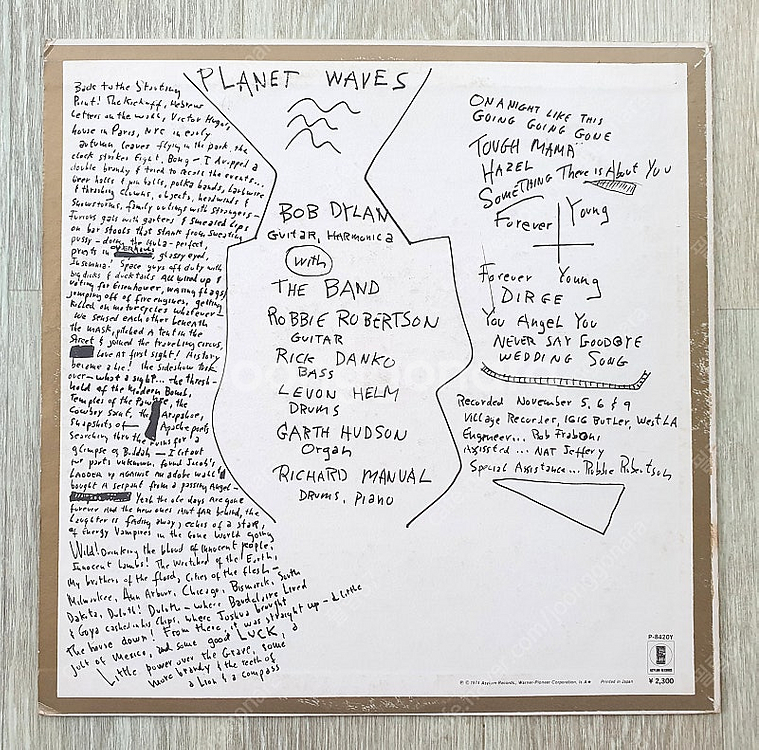 PLANET WAVES
Back to the Starting
Point! The Kickoff, Hebrew
Letters on the wall, Victor Hugo's
house in Paris, NYC in early
autumn, leaves flying in the park, the
clock strikes Eight. Bong – I dropped a
double brandy & tried to recall the events...
beer halls & pin balls, polka bands, barbwire
& thrashing clowns, objects, headwinds &
Snowstorms, family outings with strangers –
Furious gals with garters & smeared lips
on bar stools that stank from sweating
pussy – doing the Hula – perfect,
priests in overhauls, glassy eyed,
Insomnia! Space guys off duty with
big dicks & ducktails All wired up &
voting for Eisenhower, waving flags &
jumping off of fire engines, getting
killed on motorcycles whatever –
We sensed each other beneath
the mask, pitched A tent in the
Street & joined the traveling circus,
Love at first sight! History
became a lie! The sideshow took
over – what a sight... the thresh-
hold of the Modern Bomb,
Temples of the Pawnee, the
Cowboy Saint, the Arapahoe,
Snapshots of – Apache poets
Searching thru the ruins for a
glimpse of Buddah – I lit out
for parts unknown, found Jacob's
Ladder up against an adobe wall &
bought A serpent from a passing Angel –
Yeah the ole days Are gone
forever And the new ones Aint far behind, the
Laughter is fading away, echos of a star,
of Energy Vampires in the Gone World going
Wild! Drinking the blood of innocent people,
Innocent Lambs! The Wretched of the Earth,
My brothers of the flood, Cities of the flesh –
Milwaukee, Ann Arbor, Chicago, Bismarck, South
Dakota, Duluth! Duluth – where Baudelaire Lived
& Goya cashed in his Chips, where Joshua brought
the house down! From there, it was straight up – a Little
jolt of Mexico, and some good LUCK, a
Little power over the Grave, some
more brandy & the teeth of
a Lion & a compass
BOB DYLAN
GUITAR, HARMONICA
with
THE BAND
ROBBIE ROBERTSON
GUITAR
RICK DANKO
BASS
LEVON HELM
DRUMS
GARTH HUDSON
Organ
RICHARD MANUAL
DRUMS, PIANO
ON A NIGHT LIKE THIS
GOING GOING GONE
TOUGH MAMA
HAZEL
SOMETHING There is About You
Forever Young
Forever Young
DIRGE
You Angel You
NEVER SAY GOODBYE
WEDDING SONG
Recorded November 5, 6 & 9
Village Recorder, 1616 BUTLER, West LA
Engeneer... Rob Fraboni
Assissted... NAT Jeffery
Special Assistance... Robbie Robertson
P-8420Y
ASYLUM RECORDS
¥ 2,300
℗ © 1974 Asylum Records, Warner-Pioneer Corporation, Printed in Japan